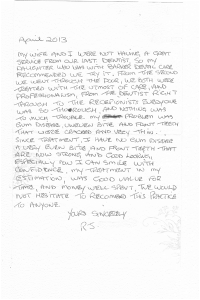 April 2013
MY WIFE AND I WERE NOT HAVING A GREAT
SERVICE FROM OUR LAST DENTIST, SO MY
DAUGHTER WHO WAS WITH BARKER DENTAL CARE
RECOMMENDED WE TRY IT, FROM THE SECOND
WE WENT THROUGH THE DOOR, WE BOTH WERE
TREATED WITH THE UTMOST OF CARE, AND
PROFESSIONALISM, FROM THE DENTIST RIGHT
THROUGH TO THE RECEPTIONISTS EVERYONE
WAS SO THOROUGH AND NOTHING WAS
TO MUCH TROUBLE. MY PROBLEM WAS
GUM DISEASE, UNEVEN BITE AND FRONT TEETH
THAT WERE CRACKED AND VERY THIN.
SINCE TREATMENT, I HAVE NO GUM DISEASE
A VERY EVEN BITE AND FRONT TEETH THAT
ARE NOW STRONG AND GOOD LOOKING,
ESPECIALLY NOW I CAN SMILE WITH
CONFIDENCE, MY TREATMENT IN MY
ESTIMATION, WAS GOOD VALUE FOR
TIME, AND MONEY WELL SPENT, I WOULD
NOT HESITATE TO RECOMMEND THIS PRACTICE
TO ANYONE.
YOURS SINCERELY
RS